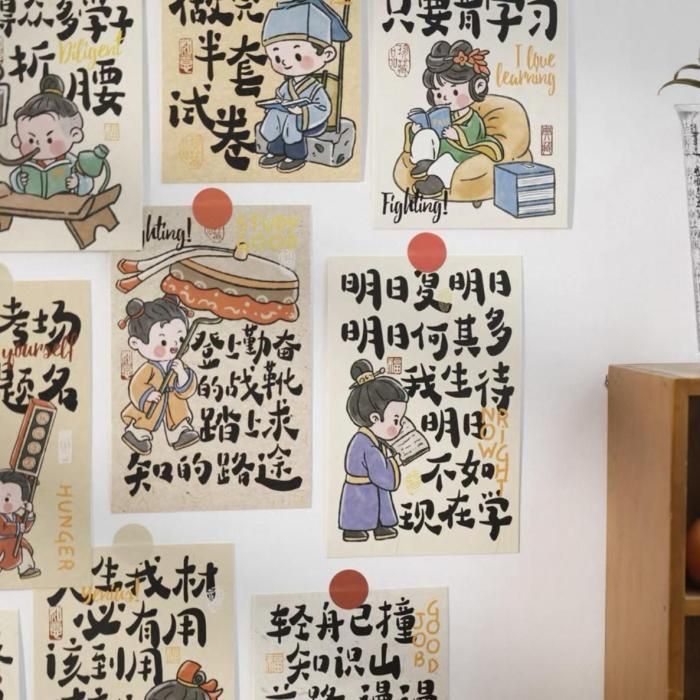 众多学子
Diligent
折
腰
做完
半套
试卷
只要肯学习
I love
learning
Fighting!
考场
yourself
题名
HUNGER
ghting!
STUDY
GOOD
登上勤奋
的战靴
踏上求
知的路途
明日复明日
明日何其多
我生待
明日
不如
现在学
RIGHT
NOW
福
人生我材
必有用
该到用
轻舟已撞
知识山
GOOD
JOB